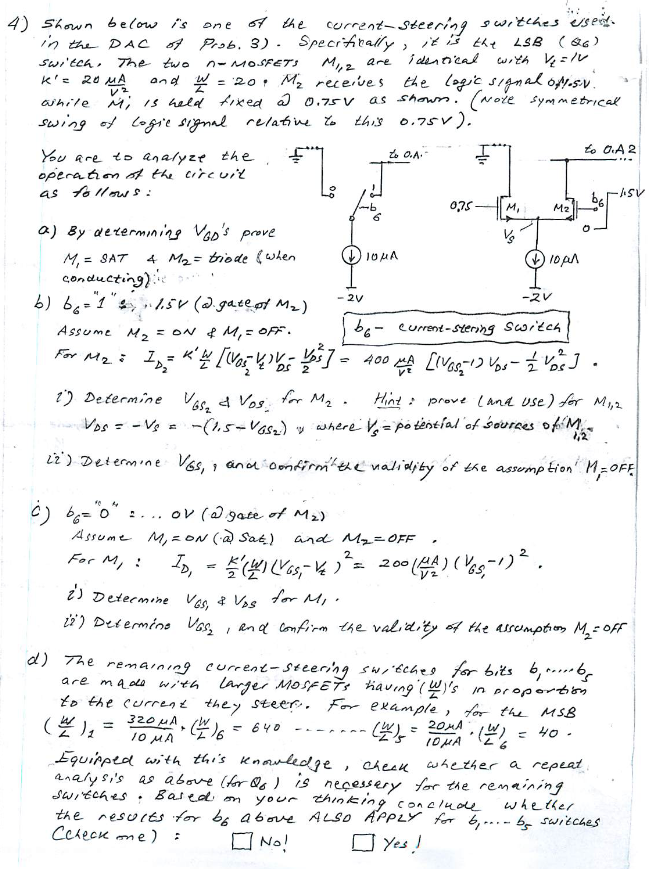 4) Shown below is one of the current-steering switches used
in the DAC of Prob. 3). Specifically, it is the LSB (Q6)
switch. The two n-MOSFETs M1,2 are identical with Vt=1V
K' = 20 μA/V² and W/L = 20. M2 receives the logic signal 0/1.5V
while M1 is held fixed @ 0.75V as shown. (Note symmetrical
swing of logic signal relative to this 0.75V).
You are to analyze the
operation of the circuit
as follows:
to O.A.
1
0
b6
10μA
-2V
to O.A 2
0.75
M1
M2
b6
1.5V
0
Vs
10μA
-2V
b6 - current-stering switch
a) By determining VGD's prove
M1 = SAT & M2 = triode (when
conducting)
b) b6="1" : ... 1.5V (@ gate of M2)
Assume M2 = ON & M1 = OFF.
For M2 : ID2 = K' W/L [(VGS-Vt)VDS - VDS²/2] = 400 μA/V² [(VGS2-1)VDS - 1/2 VDS²].
i) Determine VGS2 & VDS for M2. Hint: prove (and use) for M1,2
VDS = -Vs = -(1.5-VGS2), where Vs = potential of sources of M1,2
ii) Determine VGS1, and confirm the validity of the assumption M1=OFF.
c) b6="0" : ... 0V (@ gate of M2)
Assume M1=ON (@ Sat) and M2=OFF.
For M1 : ID1 = K'/2 (W/L)(VGS1-Vt)² = 200(μA/V²)(VGS1-1)².
i) Determine VGS1 & VDS for M1.
ii) Determine VGS2, and confirm the validity of the assumption M2=OFF
d) The remaining current-steering switches for bits b1.....b5
are made with larger MOSFETs having (W/L)'s in proportion
to the current they steer. For example, for the MSB
(W/L)1 = 320μA/10μA · (W/L)6 = 640 ------- (W/L)5 = 20μA/10μA · (W/L)6 = 40.
Equipped with this knowledge, check whether a repeat
analysis as above (for Q6) is necessary for the remaining
switches. Based on your thinking conclude whether
the results for b6 above ALSO APPLY for b1....b5 switches
(check one) : □ No! □ Yes!